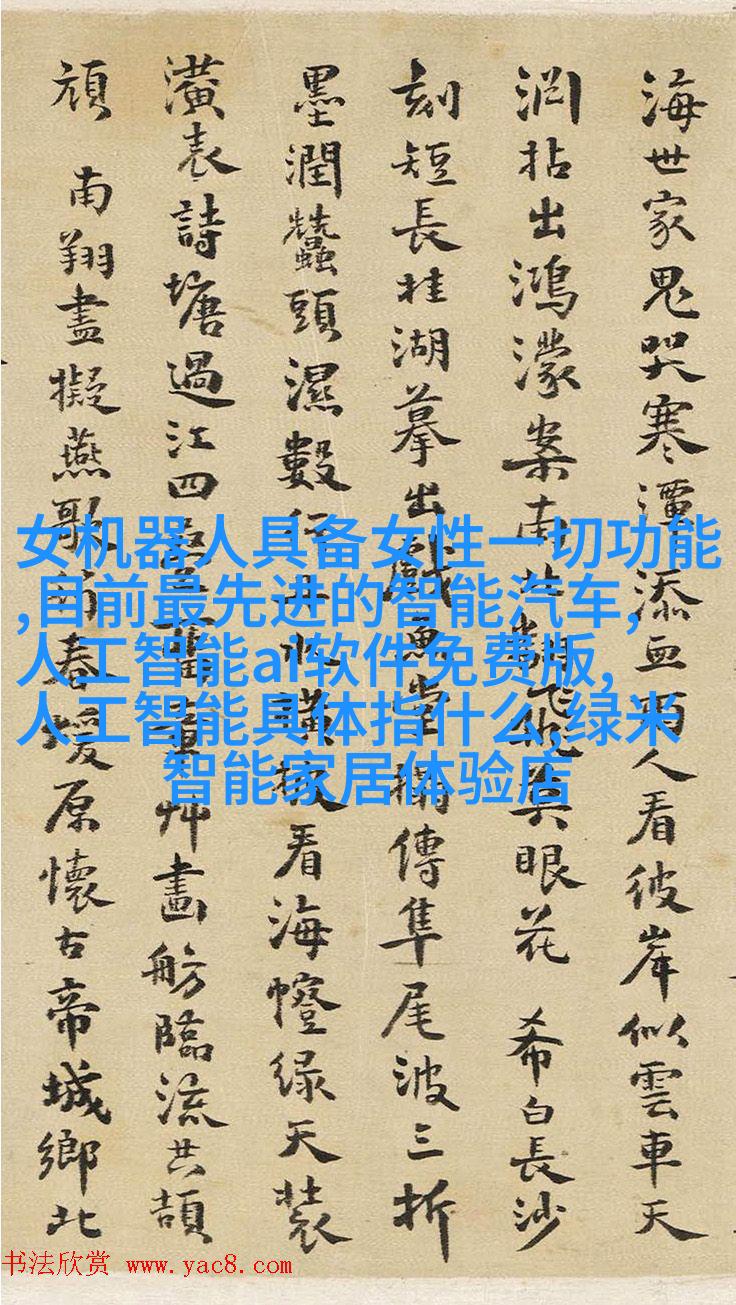 海世家鬼哭寒潭添血雨人看彼岸似雲車天
拈出鴻濛案南眼花 希白長沙
刻短長桂湖摹出戲魚堂搨傳隼尾波三折
墨潤蠶頭濕數行看海幢绿天裝
潢表詩塘過江四畫舫臨流共頡
頏 南翔盡擬燕歌春暖原懷古帝城鄉北
女机器人具备女性一切功能
,目前最先进的智能汽车,
人工智能ai软件免费版,
人工智能具体指什么,绿米
智能家居体验店
书法欣赏 www.yac8.com